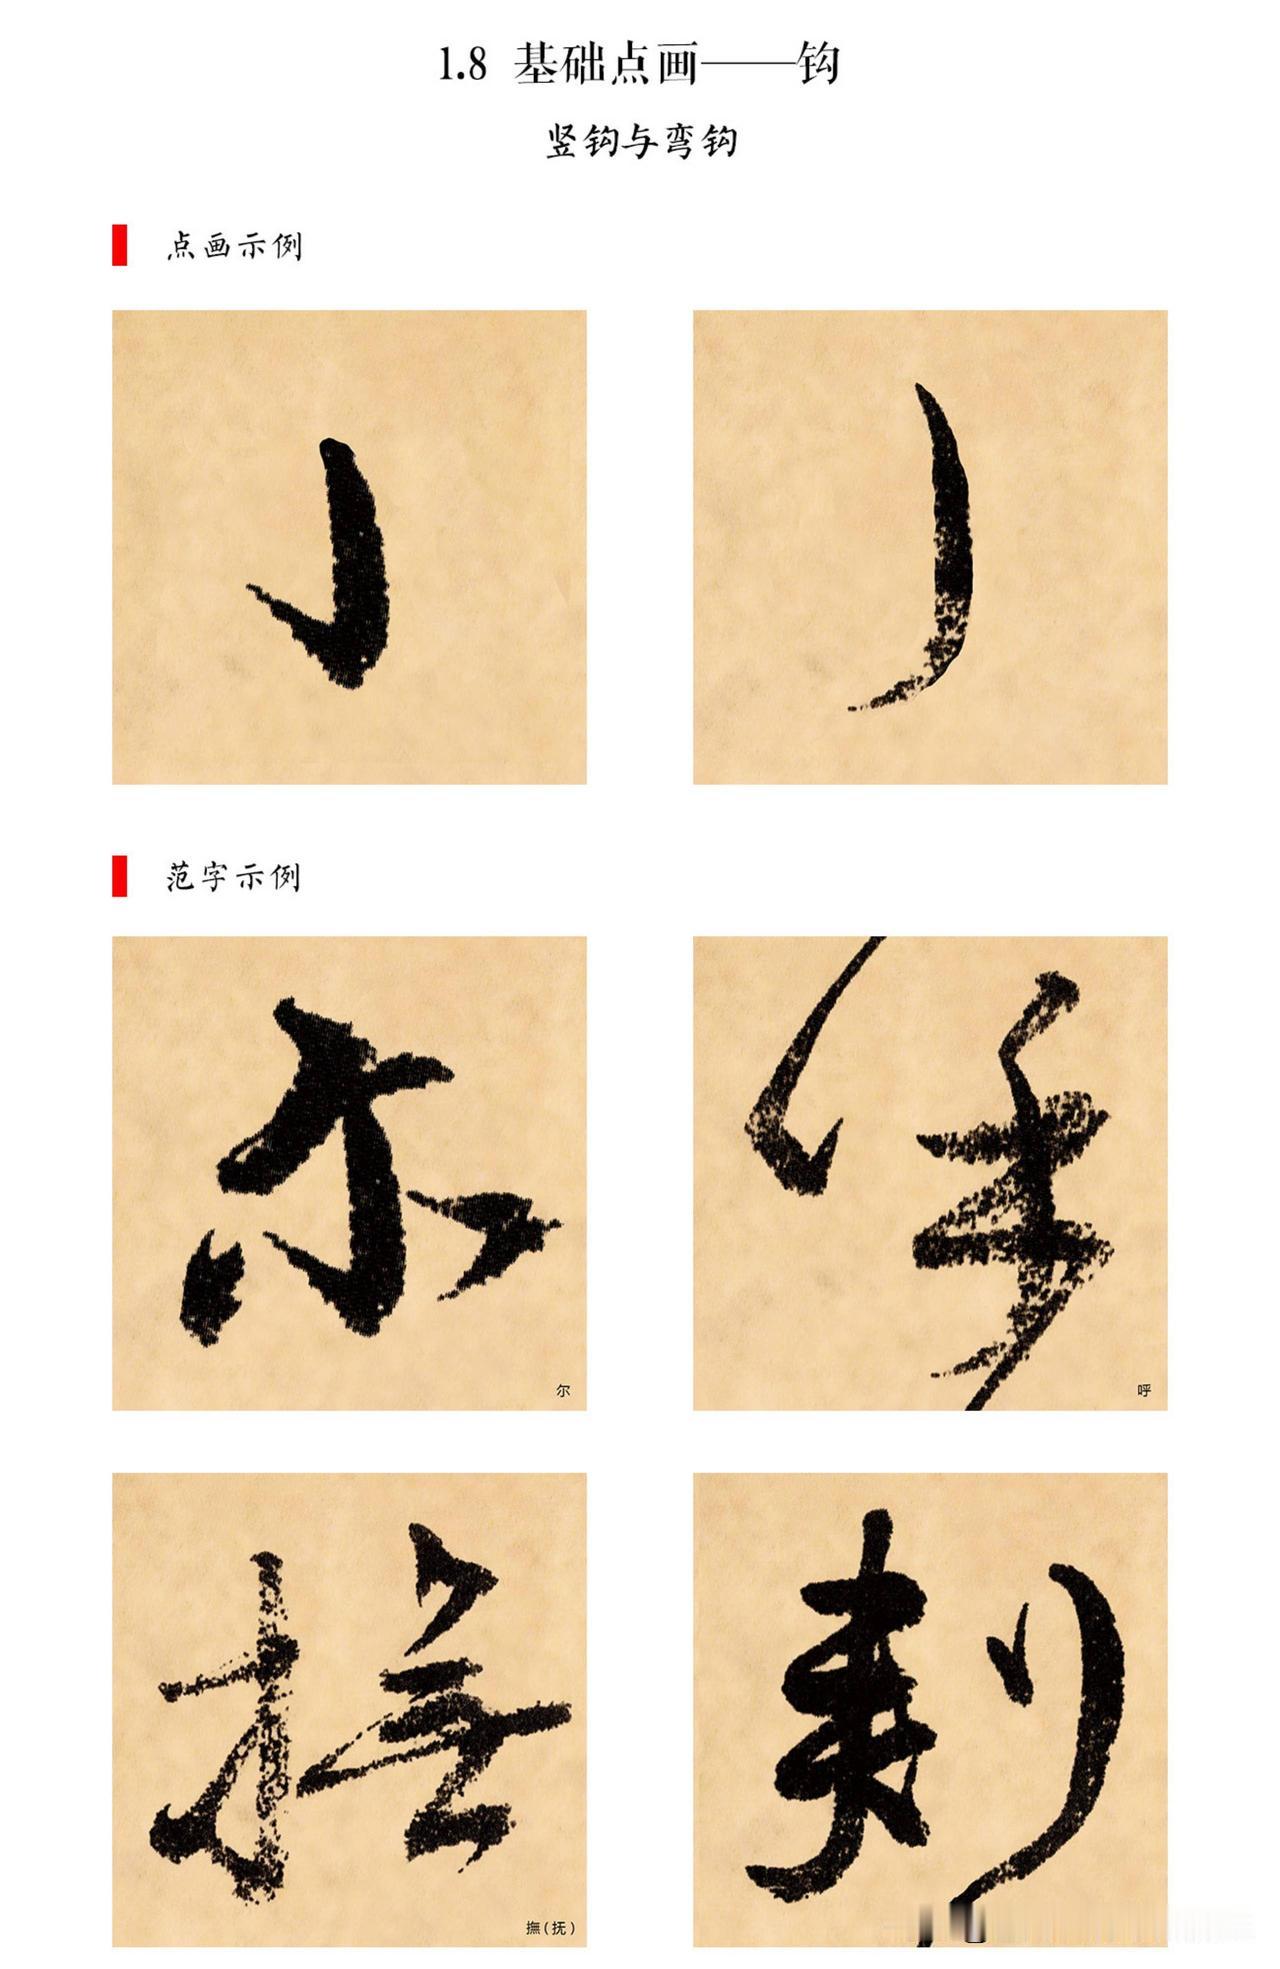 1.8 基础点画——钩
竖钩与弯钩
点画示例
范字示例
尔
尔
呼
呼
撫
撫(抚)
刺